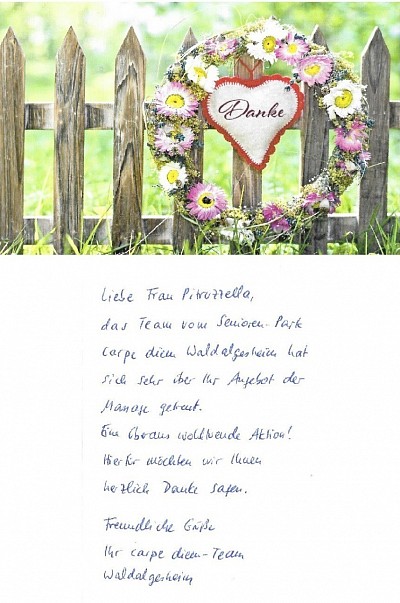 Danke
Liebe Frau Pitruzzella,
das Team vom Senioren-Park
carpe diem Waldalgesheim hat
sich sehr über Ihr Angebot der
Massage gefreut.
Eine überaus wohltuende Aktion!
Hierfür möchten wir Ihnen
herzlich Danke sagen.
Freundliche Grüße
Ihr carpe diem-Team
Waldalgesheim